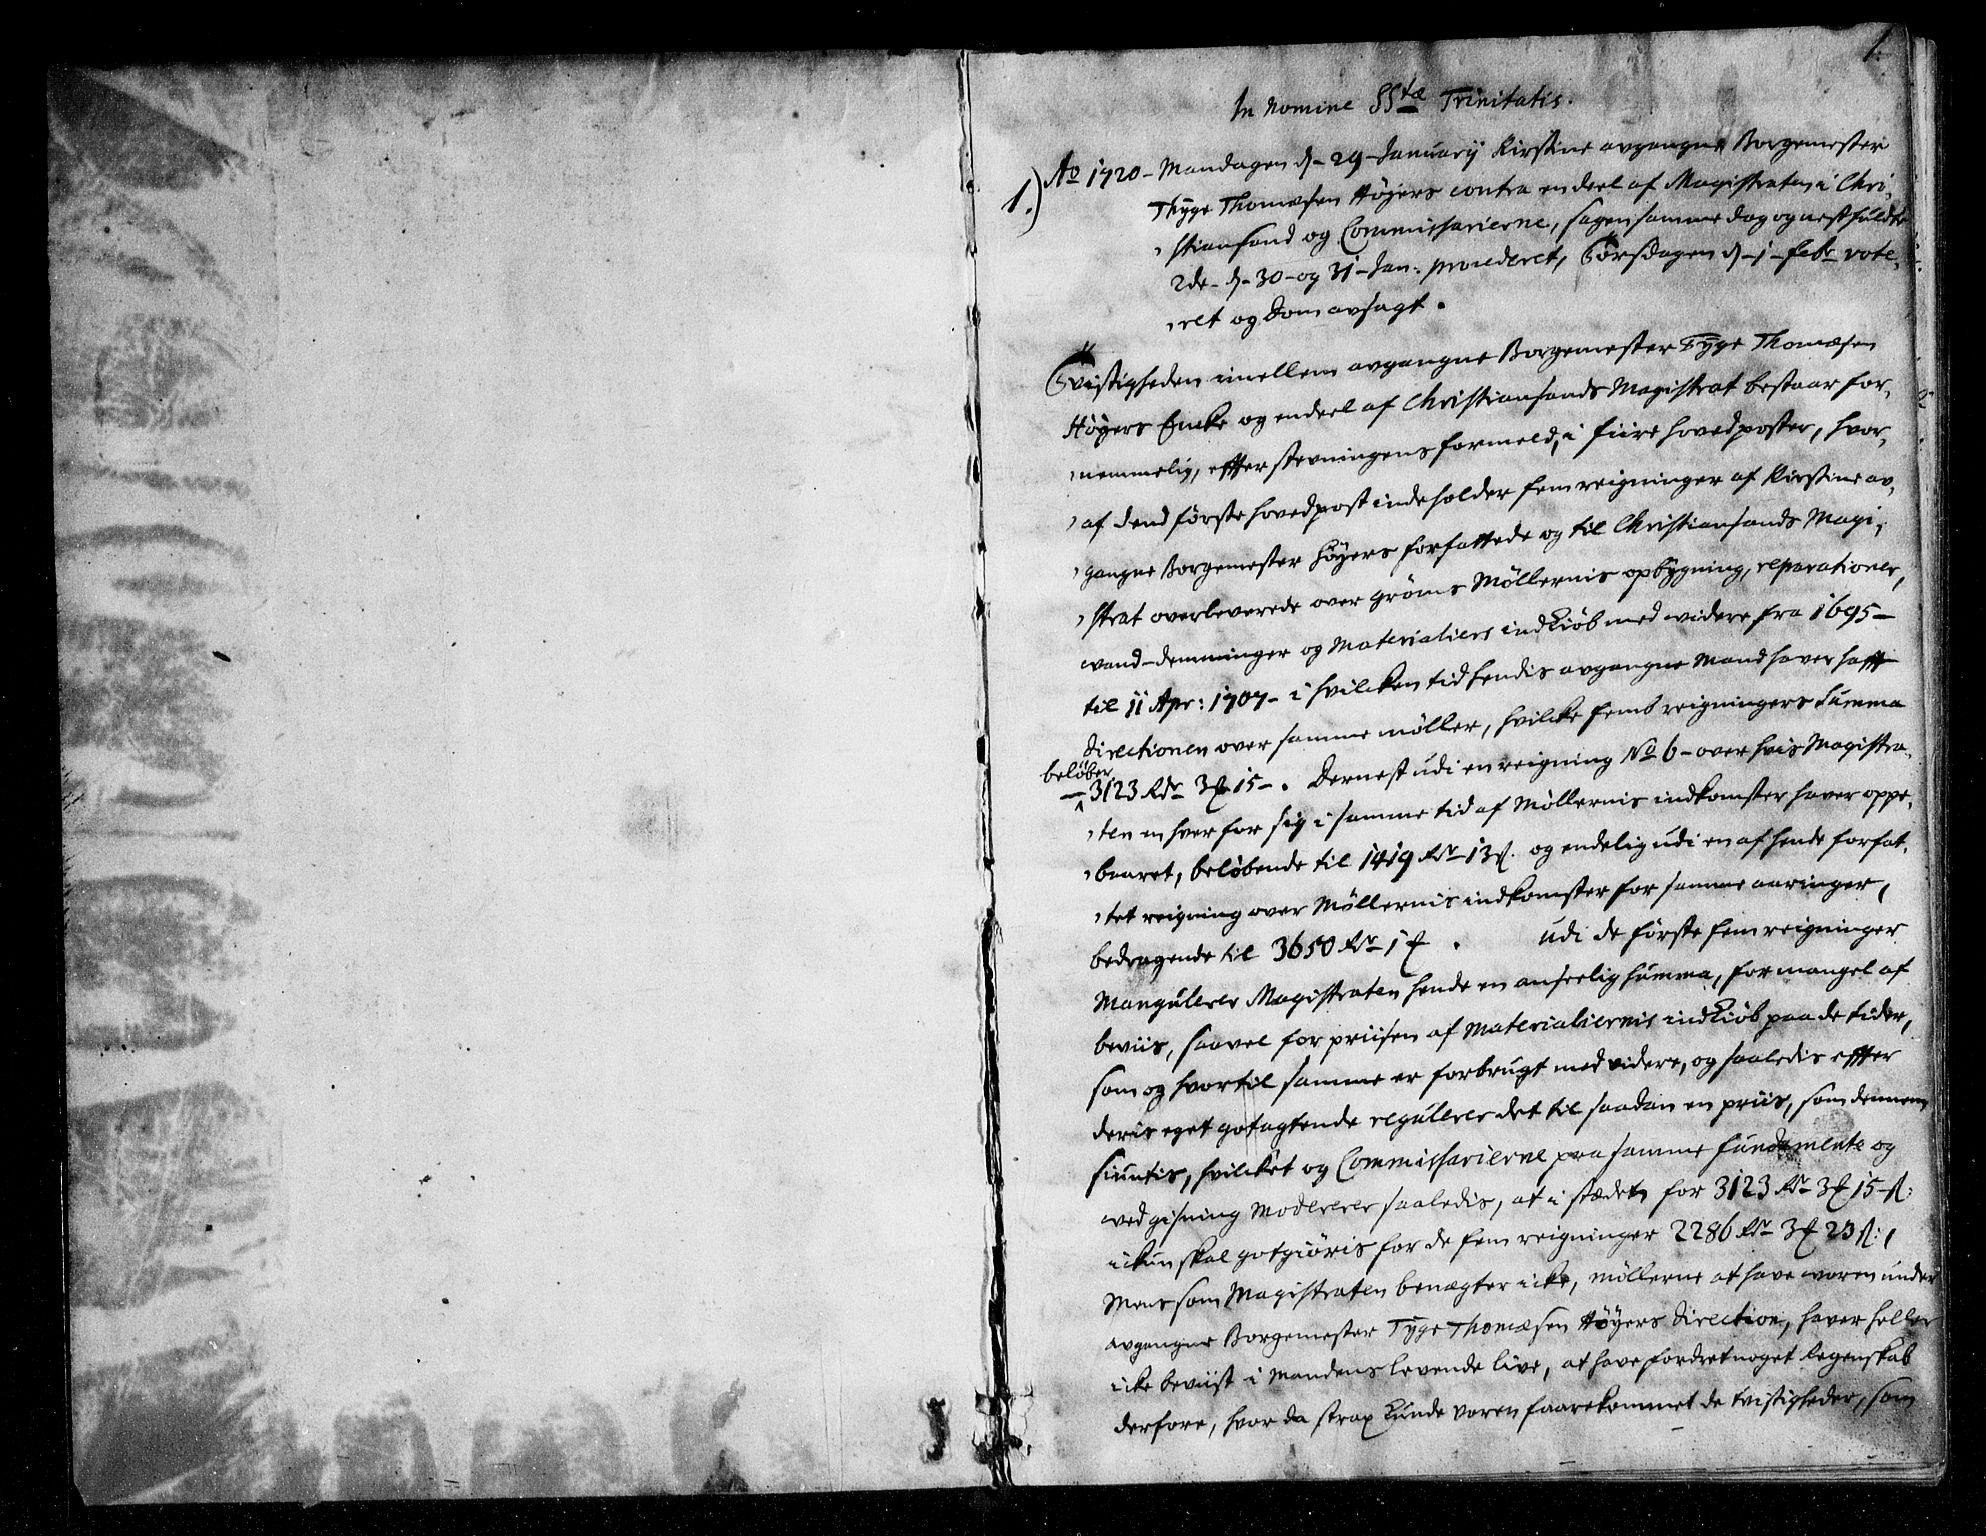 1.
In Nomine SStæ Trinitatis.
1.) Ao 1720 - Mandagen d. 29 January Kirstine avgangne Borgemester
Thyge Thomæsen Høyers contra en deel af Magistraten i Chri,
,stiansand og Commissarierne, sagen samme dag og nestfuldte
2de d. 30 og 31 Jan: proucederet, Torsdagen d. 1 febr vote,
,ret og dom avsagt.
Tvistigheden imellem avgangne Borgemester Tyge Thomæsen
Høyers Encke og endeel af Christiansands Magistrat bestaar for,
,nemmelig, effter stevningens formeld, i fiire hovedposter, hvor,
,af dend første hovedpost indeholder fem reigninger af Kirstine av,
,gangne Borgemester Høyers forfattede og til Christiansands Magi,
,strat overleverede over grøms Møllernis opbygning, reparationer,
vand-demminger og Materialiers indkiøb med videre fra 1695
til 11 Apr: 1707 - i hvilcken tid hendis avgangne Mand haver hafft
directionen over samme møller, hvilcke femb reigningers Summa
beløber
3123 Rdr 3 15 - . Dernest udi en reigning No 6 - over hvis Magistra,
,ten en hver for sig i samme tid af Møllernis indkomster haver oppe,
,baaret, beløbende til 1419 Rdr 13 s. og endelig udi en af hende forfat,
,tet reigning over Møllernis indkomster for samme aaringer,
bedragende til 3650 Rdr 1 . udi de første fem reigninger
Mangulerer Magistraten hende en anseelig Summa, for mangel af
beviis, saavel for priisen af Materialiernis indkiøb paa de tider,
som og hvortil samme er forbrugt med videre, og saaledis effter
deris eget gotagtende regulerer det til saadan en priis, som dennem
siuntis, hvilcket og Commissarierne paa samme fundamente og
ved gisning Modererer saaledis, at i stædet for 3123 Rdr 3 15 s:
ickun skal gotgiøris for de fem reigninger 2286 Rdr 3 23 s:,
Mens som Magistraten benægter icke, møllerne at have voren under
avgangne Borgemester Tyge Thomæsen Høyers direction, haver heller
icke beviist i Mandens levende live, at have fordret noget Regenskab
derfore, hvor da strax kunde voren faarekommet de tvistigheder, som